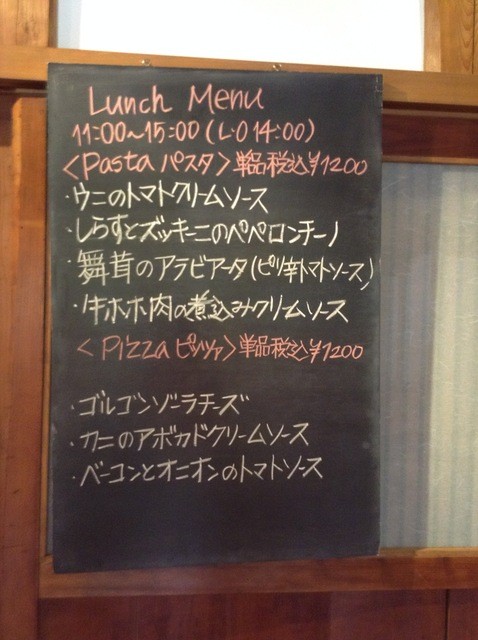 Lunch Menu
11:00~15:00(L・O 14:00)
<Pasta パスタ>単品税込¥1200
・ウニのトマトクリームソース
・しらすとズッキーニのペペロンチーノ
・舞茸のアラビアータ(ピリ辛トマトソース)
・牛ホホ肉の煮込みクリームソース
<Pizza ピッツァ>単品税込¥1200
・ゴルゴンゾーラチーズ
・カニのアボカドクリームソース
・ベーコンとオニオンのトマトソース